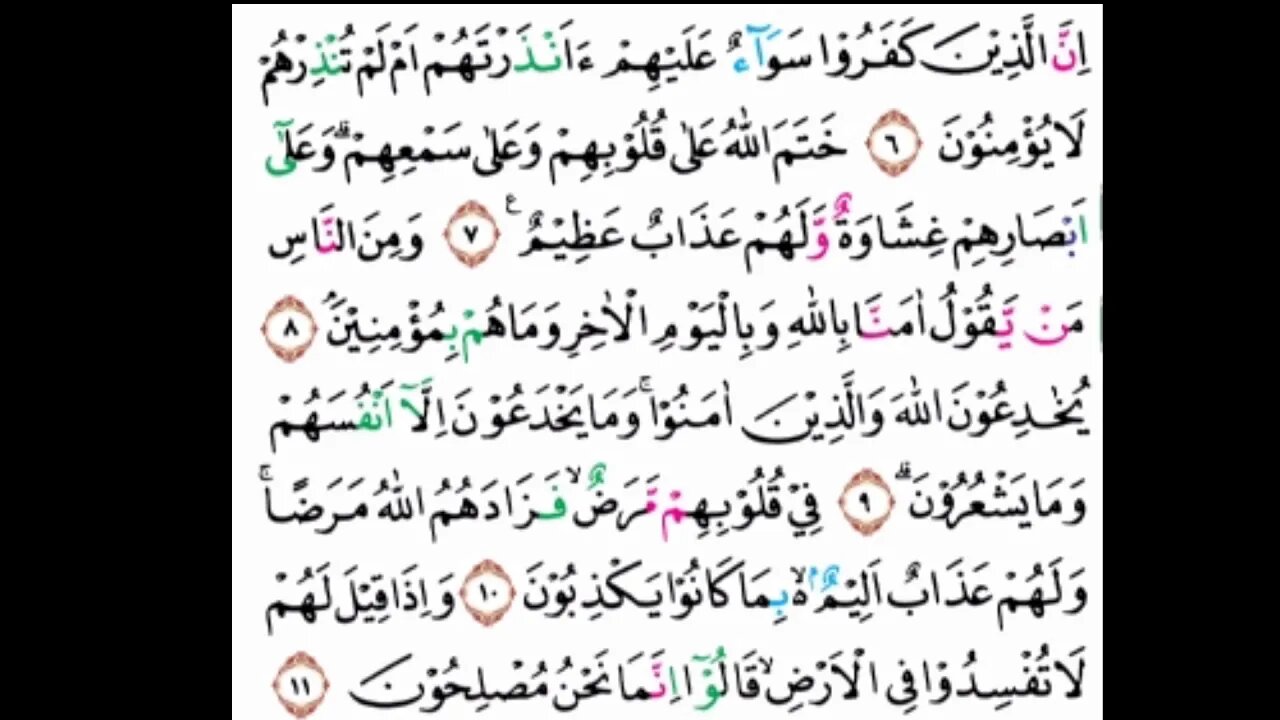 اِنَّ الَّذِيْنَ كَفَرُوْا سَوَآءٌ عَلَيْهِمْ ءَاَنْذَرْتَهُمْ اَمْ لَمْ تُنْذِرْهُمْ
لَا يُؤْمِنُوْنَ ٦ خَتَمَ اللّٰهُ عَلٰى قُلُوْبِهِمْ وَعَلٰى سَمْعِهِمْ ۗ وَعَلٰٓى
اَبْصَارِهِمْ غِشَاوَةٌ وَّلَهُمْ عَذَابٌ عَظِيْمٌ ࣖ ٧ وَمِنَ النَّاسِ
مَنْ يَّقُوْلُ اٰمَنَّا بِاللّٰهِ وَبِالْيَوْمِ الْاٰخِرِ وَمَا هُمْ بِمُؤْمِنِيْنَ ۘ ٨
يُخٰدِعُوْنَ اللّٰهَ وَالَّذِيْنَ اٰمَنُوْا ۚ وَمَا يَخْدَعُوْنَ اِلَّآ اَنْفُسَهُمْ
وَمَا يَشْعُرُوْنَ ۗ ٩ فِيْ قُلُوْبِهِمْ مَّرَضٌ ۙ فَزَادَهُمُ اللّٰهُ مَرَضًا ۚ
وَلَهُمْ عَذَابٌ اَلِيْمٌ ۢ ەۙ بِمَا كَانُوْا يَكْذِبُوْنَ ١٠ وَاِذَا قِيْلَ لَهُمْ
لَا تُفْسِدُوْا فِى الْاَرْضِ ۙ قَالُوْٓا اِنَّمَا نَحْنُ مُصْلِحُوْنَ ١١